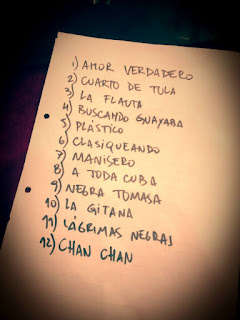 1) AMOR VERDADERO
2) CUARTO DE TULA
3) LA FLAUTA
4) BUSCANDO GUAYABA
5) PLÁSTICO
6) CLASIQUEANDO
7) MANISERO
8) A TODA CUBA
9) NEGRA TOMASA
10) LA GITANA
11) LÁGRIMAS NEGRAS
12) CHAN CHAN